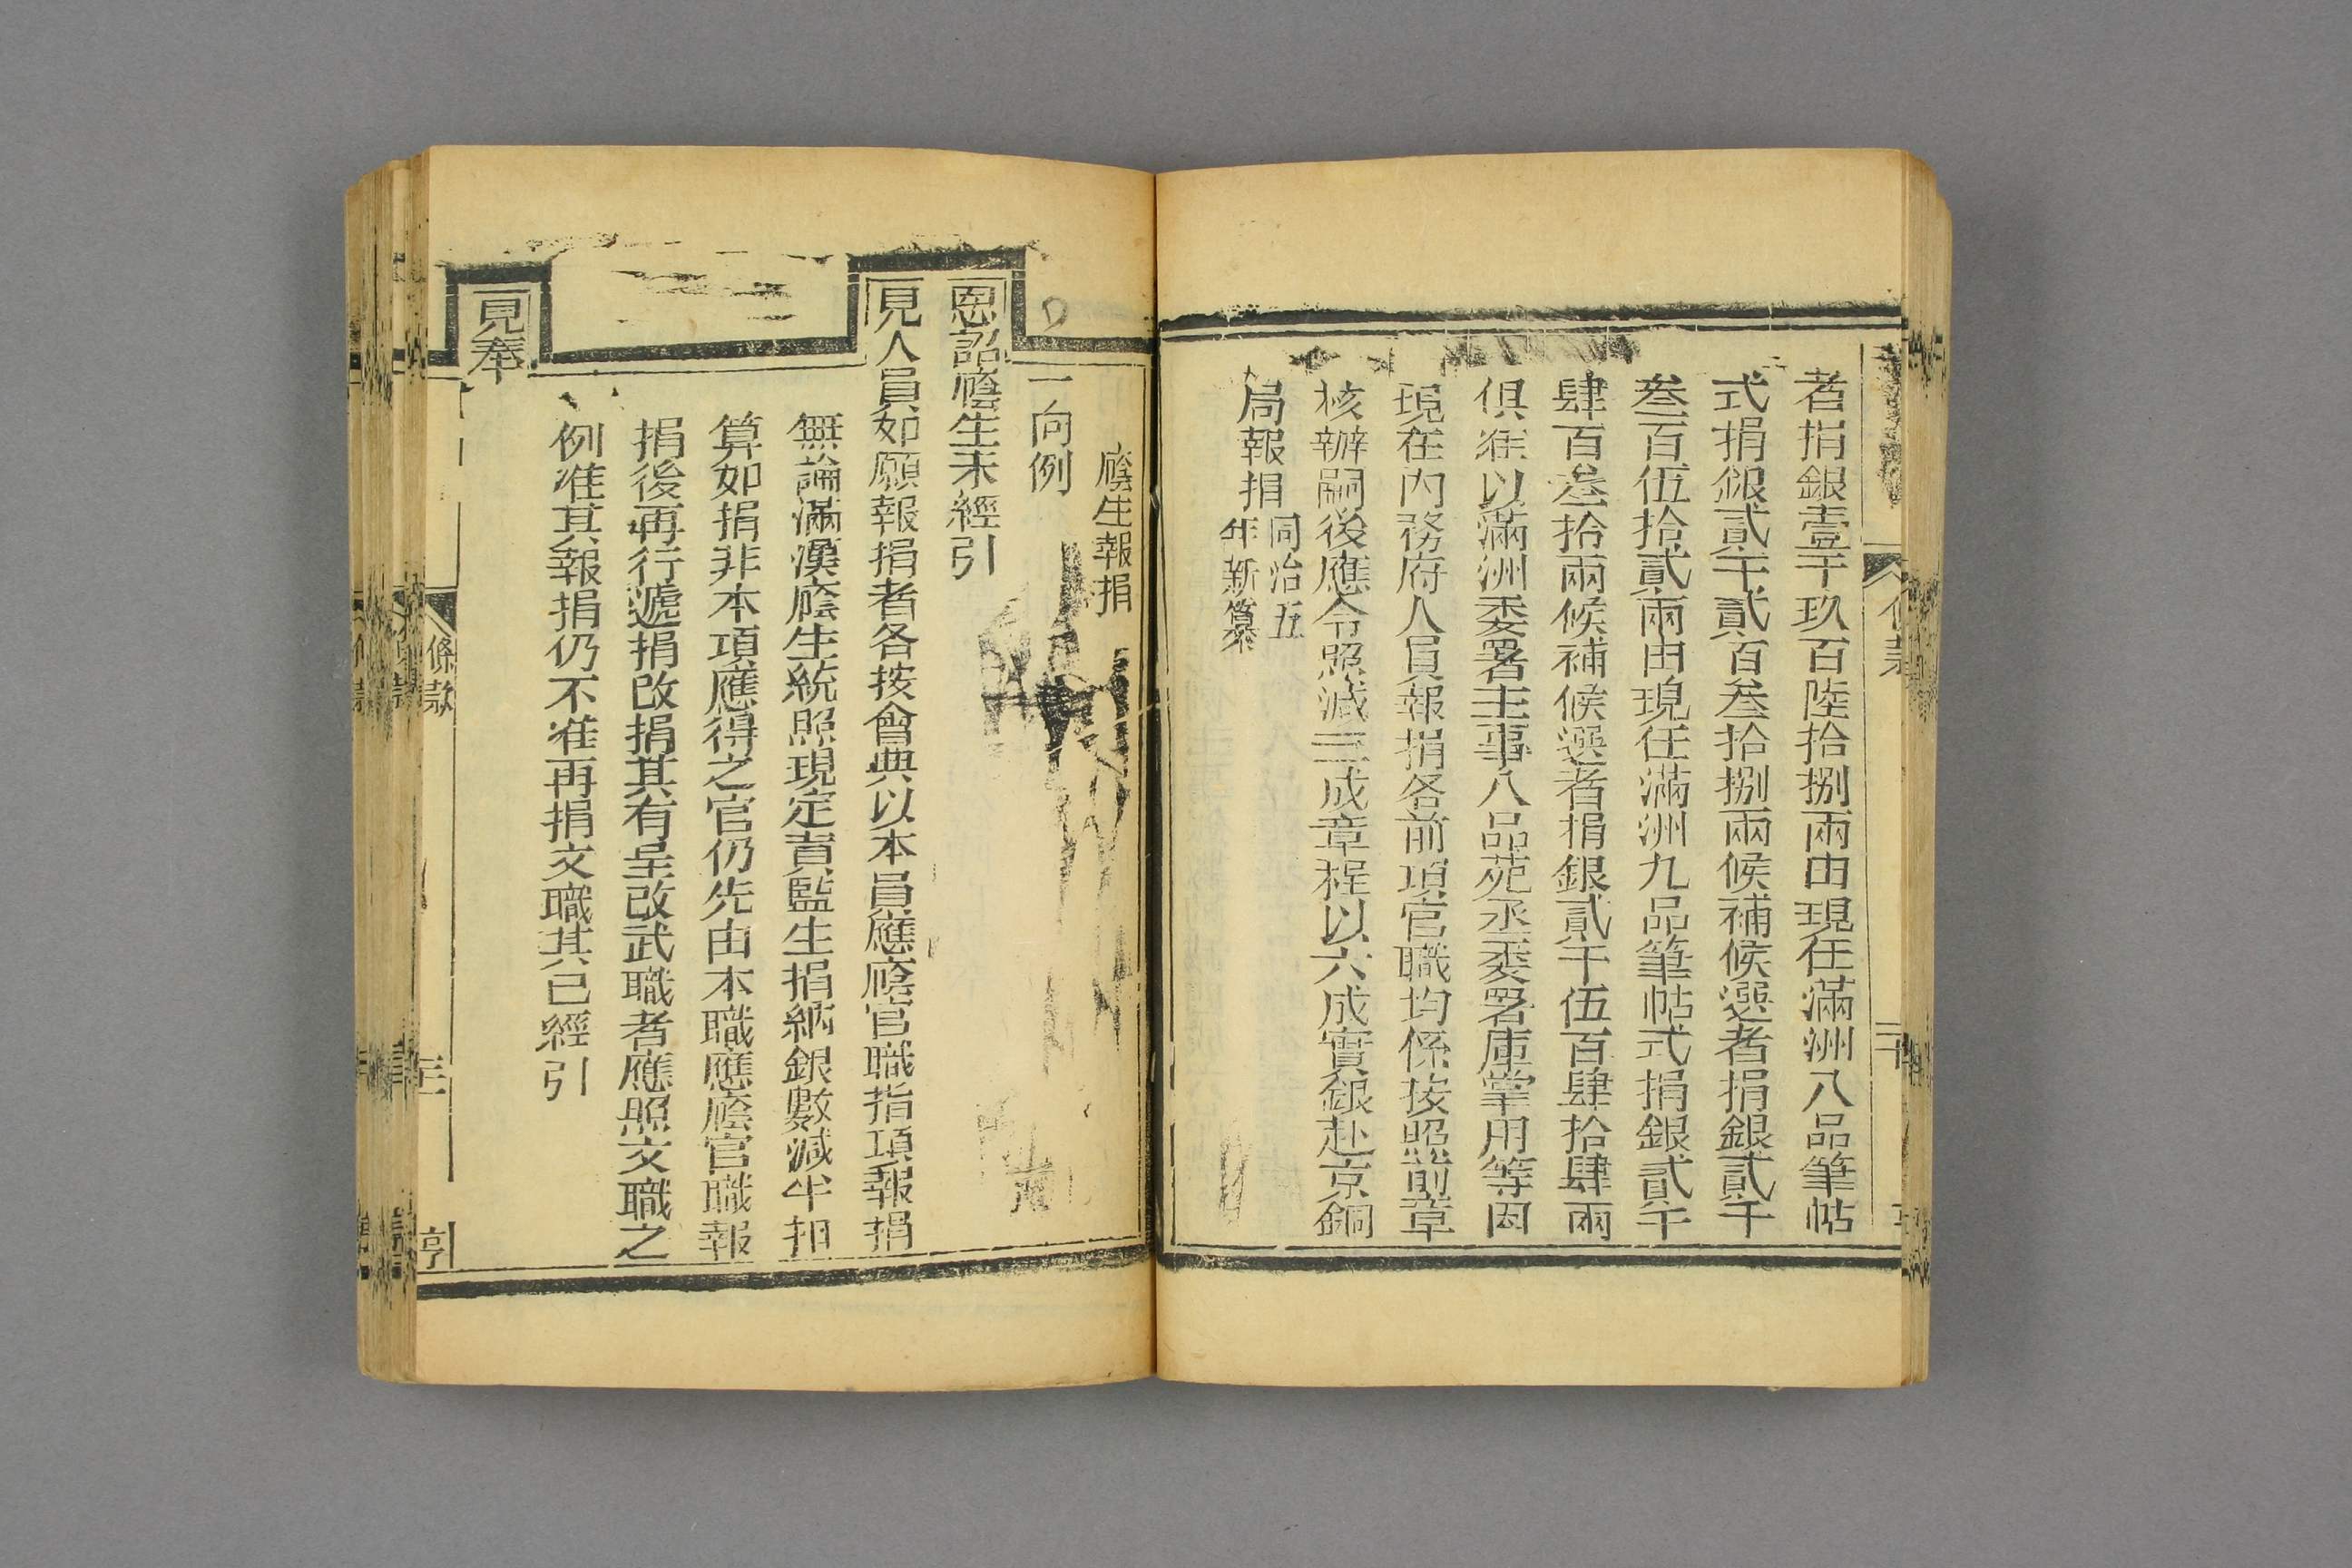 者捐銀壹千玖百陸拾捌兩由現任滿洲八品筆帖
式捐銀貳千貳百叁拾捌兩候補候選者捐銀貳千
叁百伍拾貳兩由現任滿洲九品筆帖式捐銀貳千
肆百叁拾兩候補候選者捐銀貳千伍百肆拾肆兩
俱准以滿洲委署主事八品苑丞委署庫掌用等因
現在內務府人員報捐各前項官職均係按照前章
核辦嗣後應令照減三成章程以六成實銀赴京銅
局報捐
同治五
年新纂
廕生報捐
一向例
恩詔廕生未經引
見人員如願報捐者各按會典以本員應廕官職指項報捐
無論滿漢廕生統照現定貢監生捐納銀數減半扣
算如捐非本項應得之官仍先由本職應廕官職報
捐後再行遞捐改捐其有呈改武職者應照文職之
例准其報捐仍不准再捐文職其已經引
見奉
條款
三
亨